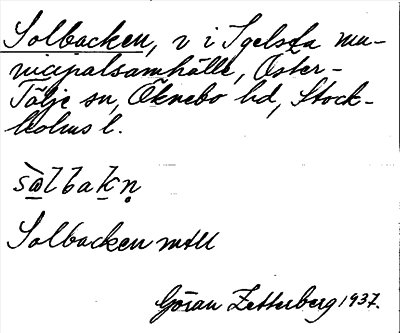 Solbacken, v i Igelsta mu-
nicipalsamhälle, Öster-
Tälje sn, Öknebo hd, Stock-
holms l.
sàlbakn̥
Solbacken
Göran Zetterberg 1937.